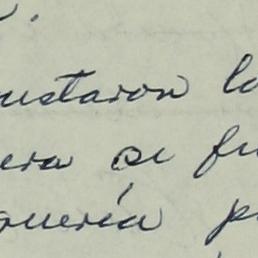 ustaron lo
era si fu
quería p